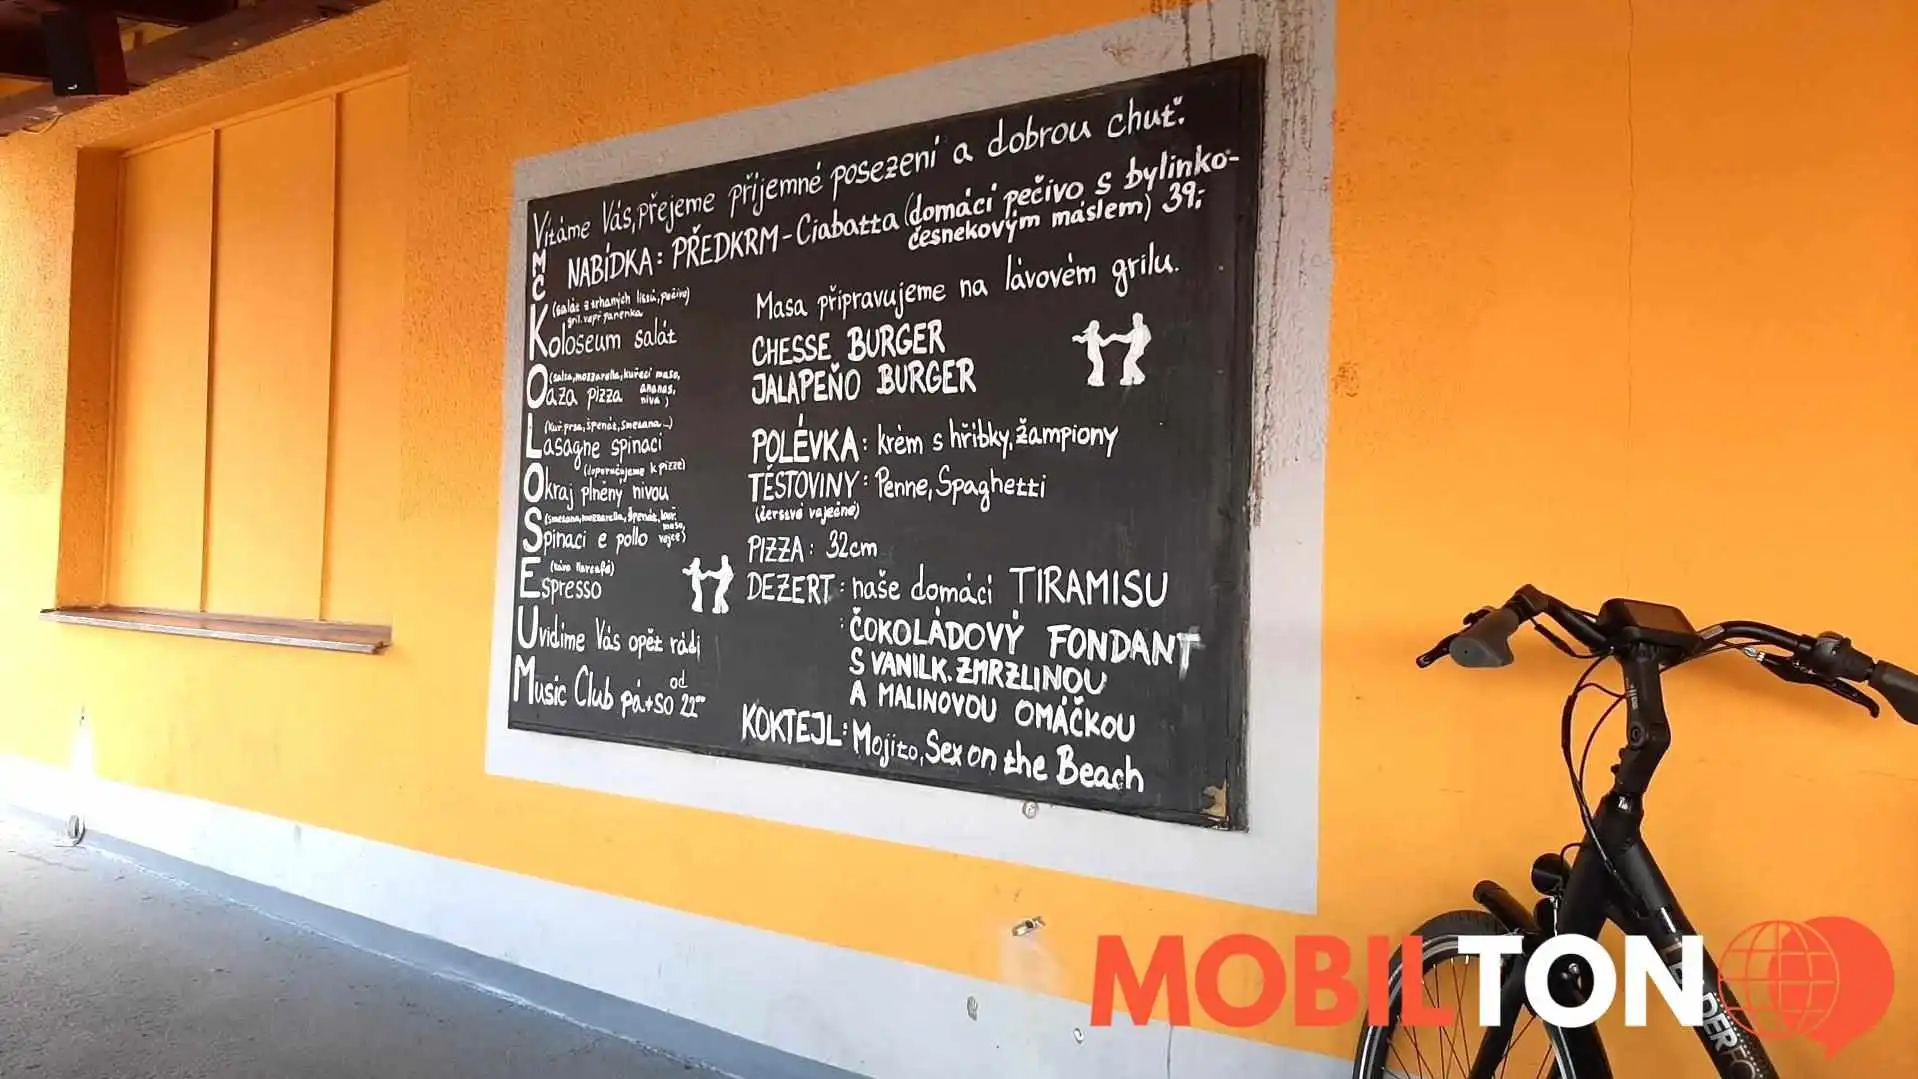 Vítáme Vás, přejeme příjemné posezení a dobrou chuť.
NABÍDKA: PŘEDKRM - Ciabatta (domácí pečivo s bylinko-
česnekovým máslem) 39,-
MČ
(salát z trhaných listů, pečivo)
gril. vepř panenka
Koloseum salát
(salsa, mozzarella, kuřecí maso,
ananas,
niva)
Oaza pizza
(kuř. prsa, špenát, smetana...)
Lasagne spinaci
(doporučujeme k pizze)
Okraj plněný nivou
(smetana, mozzarella, špenát, kuř.
maso,
vejce)
Spinaci e pollo
Espresso
Uvidíme Vás opět rádi
Music Club pá+so od 22⁰⁰
Masa připravujeme na lávovém grilu.
CHESSE BURGER
JALAPEŇO BURGER
POLÉVKA: krém s hřibky, žampiony
TĚSTOVINY: Penne, Spaghetti
(čerstvé vaječné)
PIZZA: 32cm
DEZERT: naše domácí TIRAMISU
: ČOKOLÁDOVÝ FONDANT
S VANILK. ZMRZLINOU
A MALINOVOU OMÁČKOU
KOKTEJL: Mojito, Sex on the Beach
MOBILTON